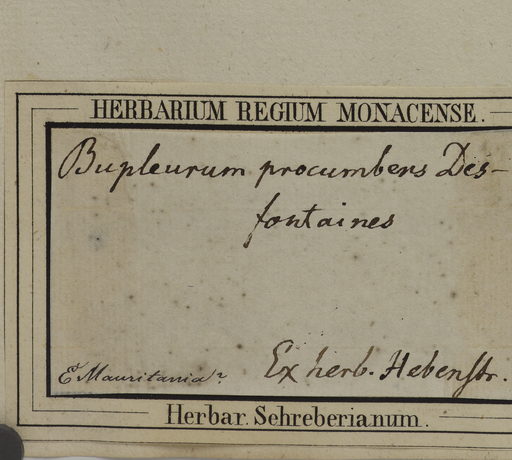 HERBARIUM REGIUM MONACENSE.
Bupleurum procumbens Des-
fontaines
E Mauritania?
Ex herb. Hebenstr.
Herbar. Schreberianum.